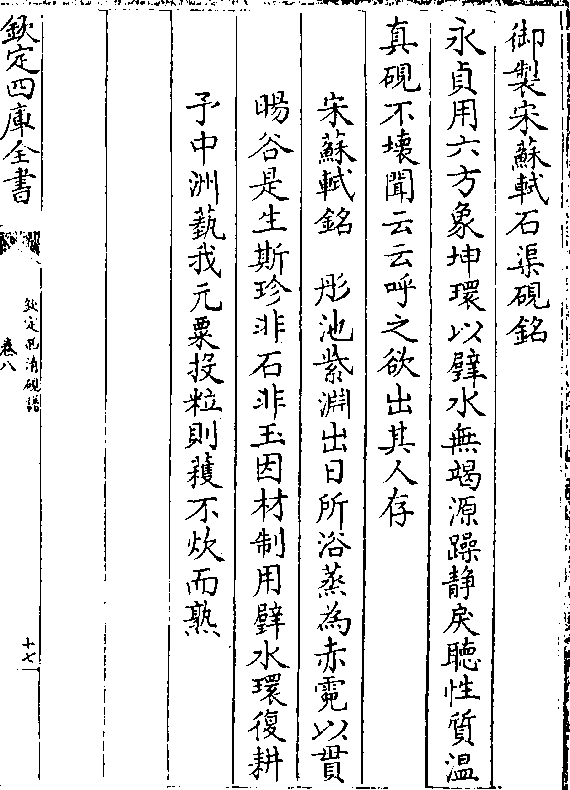 御製宋蘇軾石渠硯銘
永貞用六方象坤環以璧水無竭源躁静戾聽性質温
真硯不壊聞云云呼之欲出其人存
宋蘇軾銘　彤池紫淵出日所浴蒸為赤霓以貫
暘谷是生斯珍非石非玉因材制用璧水環復耕
予中洲蓺我元粟投粒則穫不炊而熟
欽定四庫全書
欽定西清硯譜
卷八
十七